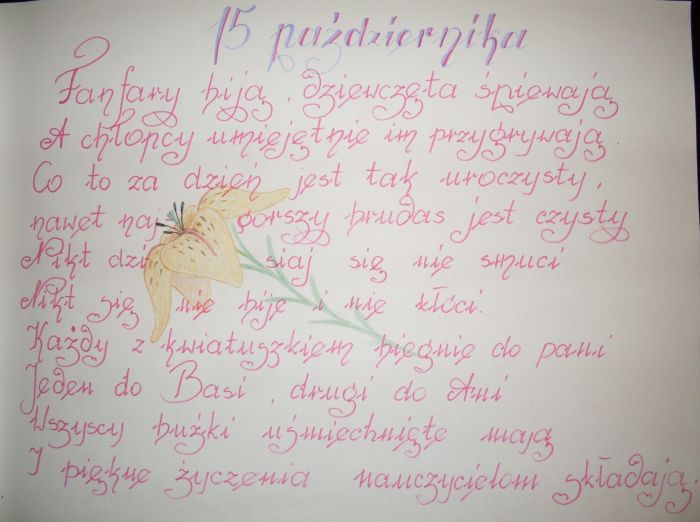 15 października
Fanfary biją, dziewczęta śpiewają
A chłopcy umiejętnie im przygrywają.
Co to za dzień jest tak uroczysty,
nawet najgorszy brudas jest czysty
Nikt dzisiaj się nie smuci
Nikt się nie bije i nie kłóci.
Każdy z kwiatuszkiem biegnie do pani
Jeden do Basi, drugi do Ani
Wszyscy buźki uśmiechnięte mają
I piękne życzenia nauczycielom składają.